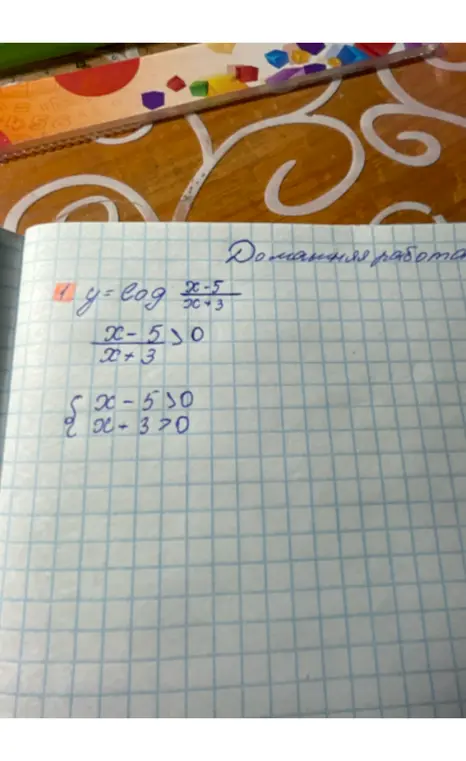 Домашняя работа
1 y = log x-5/x+3
x-5/x+3 > 0
{ x-5>0
x+3>0